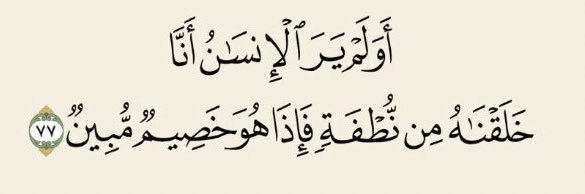 أَوَلَمۡ يَرَ ٱلۡإِنسَٰنُ أَنَّا
خَلَقۡنَٰهُ مِن نُّطۡفَةٖ فَإِذَا هُوَ خَصِيمٞ مُّبِينٞ ٧٧